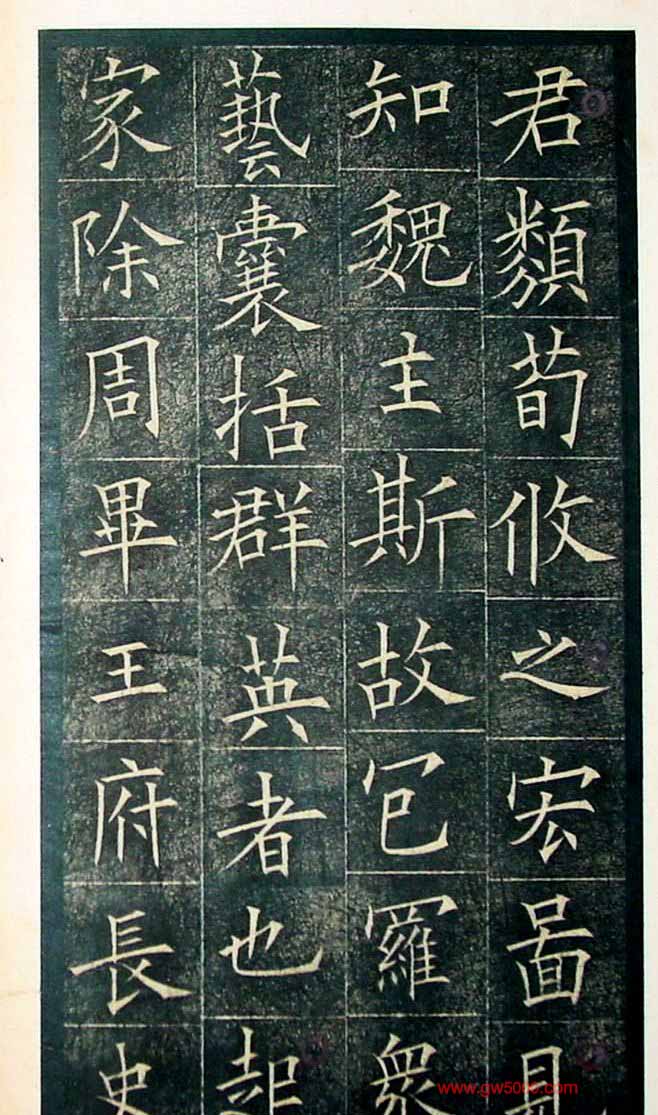 君類荀攸之宏啚且
知魏主斯故包羅眾
藝囊括群英者也起
家除周畢王府長史
www.gw5000.com